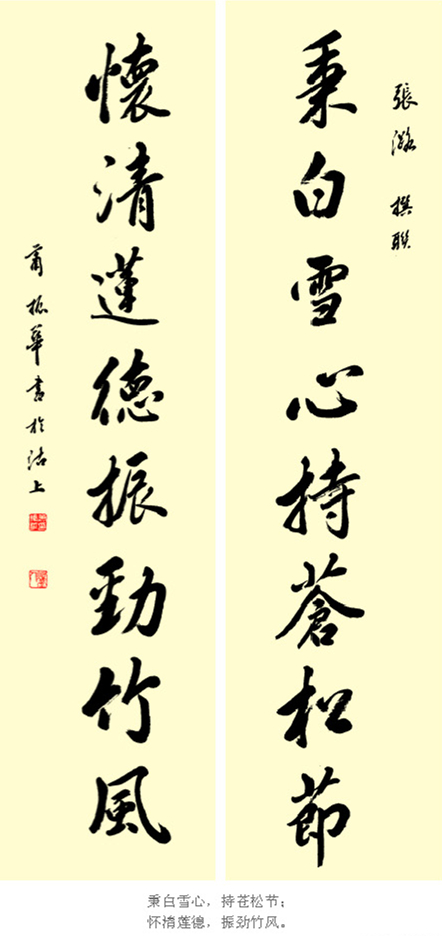 張潞 撰聯
秉白雪心持蒼松節
懷清蓮德振勁竹風
振華書於沽上
秉白雪心，持苍松节；
怀清莲德，振劲竹风。